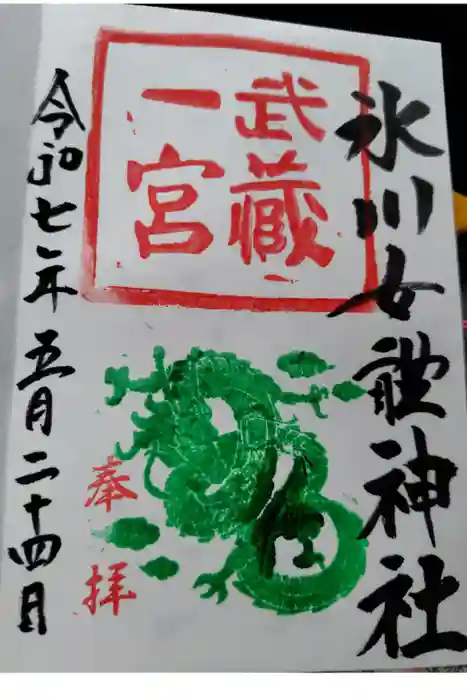 氷川女體神社
武蔵
一宮
奉拝
令和七年五月二十四日